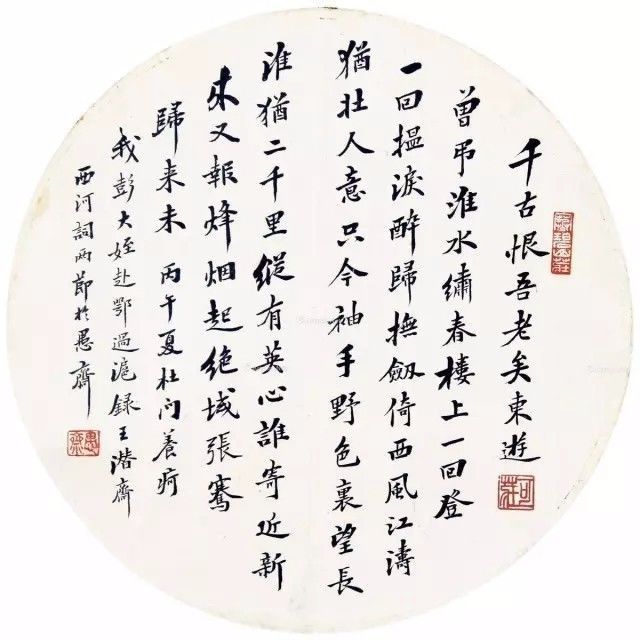 千古恨吾老矣東遊
曾弔淮水繡春樓上一回登
一回揾淚醉歸撫劔倚西風江濤
猶壯人意只今袖手野色裏望長
淮猶二千里縱有英心誰寄近新
來又報烽烟起絶域張騫
歸来未 丙午夏杜门養疴
我彭大姪赴鄂過滬録王潛齋
西河詞兩節於愚齋
愚齋